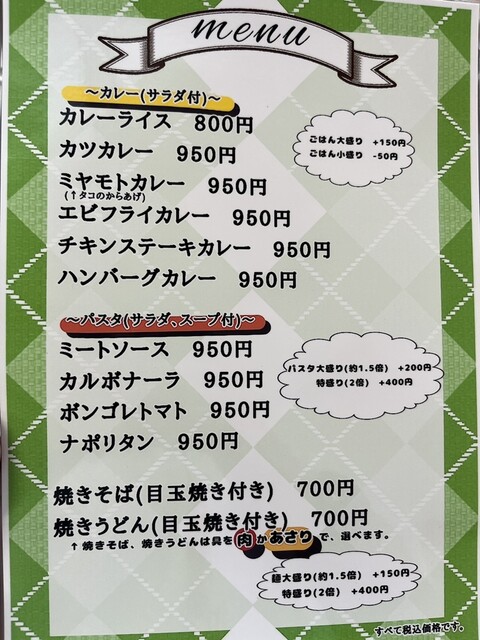 menu
～カレー(サラダ付)～
カレーライス 800円
カツカレー 950円
ごはん大盛り +150円
ごはん小盛り -50円
ミヤモトカレー 950円
(↑タコのからあげ)
エビフライカレー 950円
チキンステーキカレー 950円
ハンバーグカレー 950円
～パスタ(サラダ、スープ付)～
ミートソース 950円
カルボナーラ 950円
ボンゴレトマト 950円
ナポリタン 950円
パスタ大盛り(約1.5倍) +200円
特盛り(2倍) +400円
焼きそば(目玉焼き付き) 700円
焼きうどん(目玉焼き付き) 700円
↑焼きそば、焼きうどんは具を肉かあさりで、選べます。
麺大盛り(約1.5倍) +150円
特盛り(2倍) +400円
すべて税込価格です。